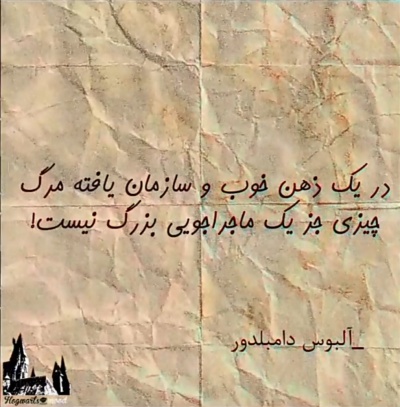 در یک ذهن خوب و سازمان یافته مرگ
چیزی جز یک ماجراجویی بزرگ نیست!
_آلبوس دامبلدور
Hogwarts